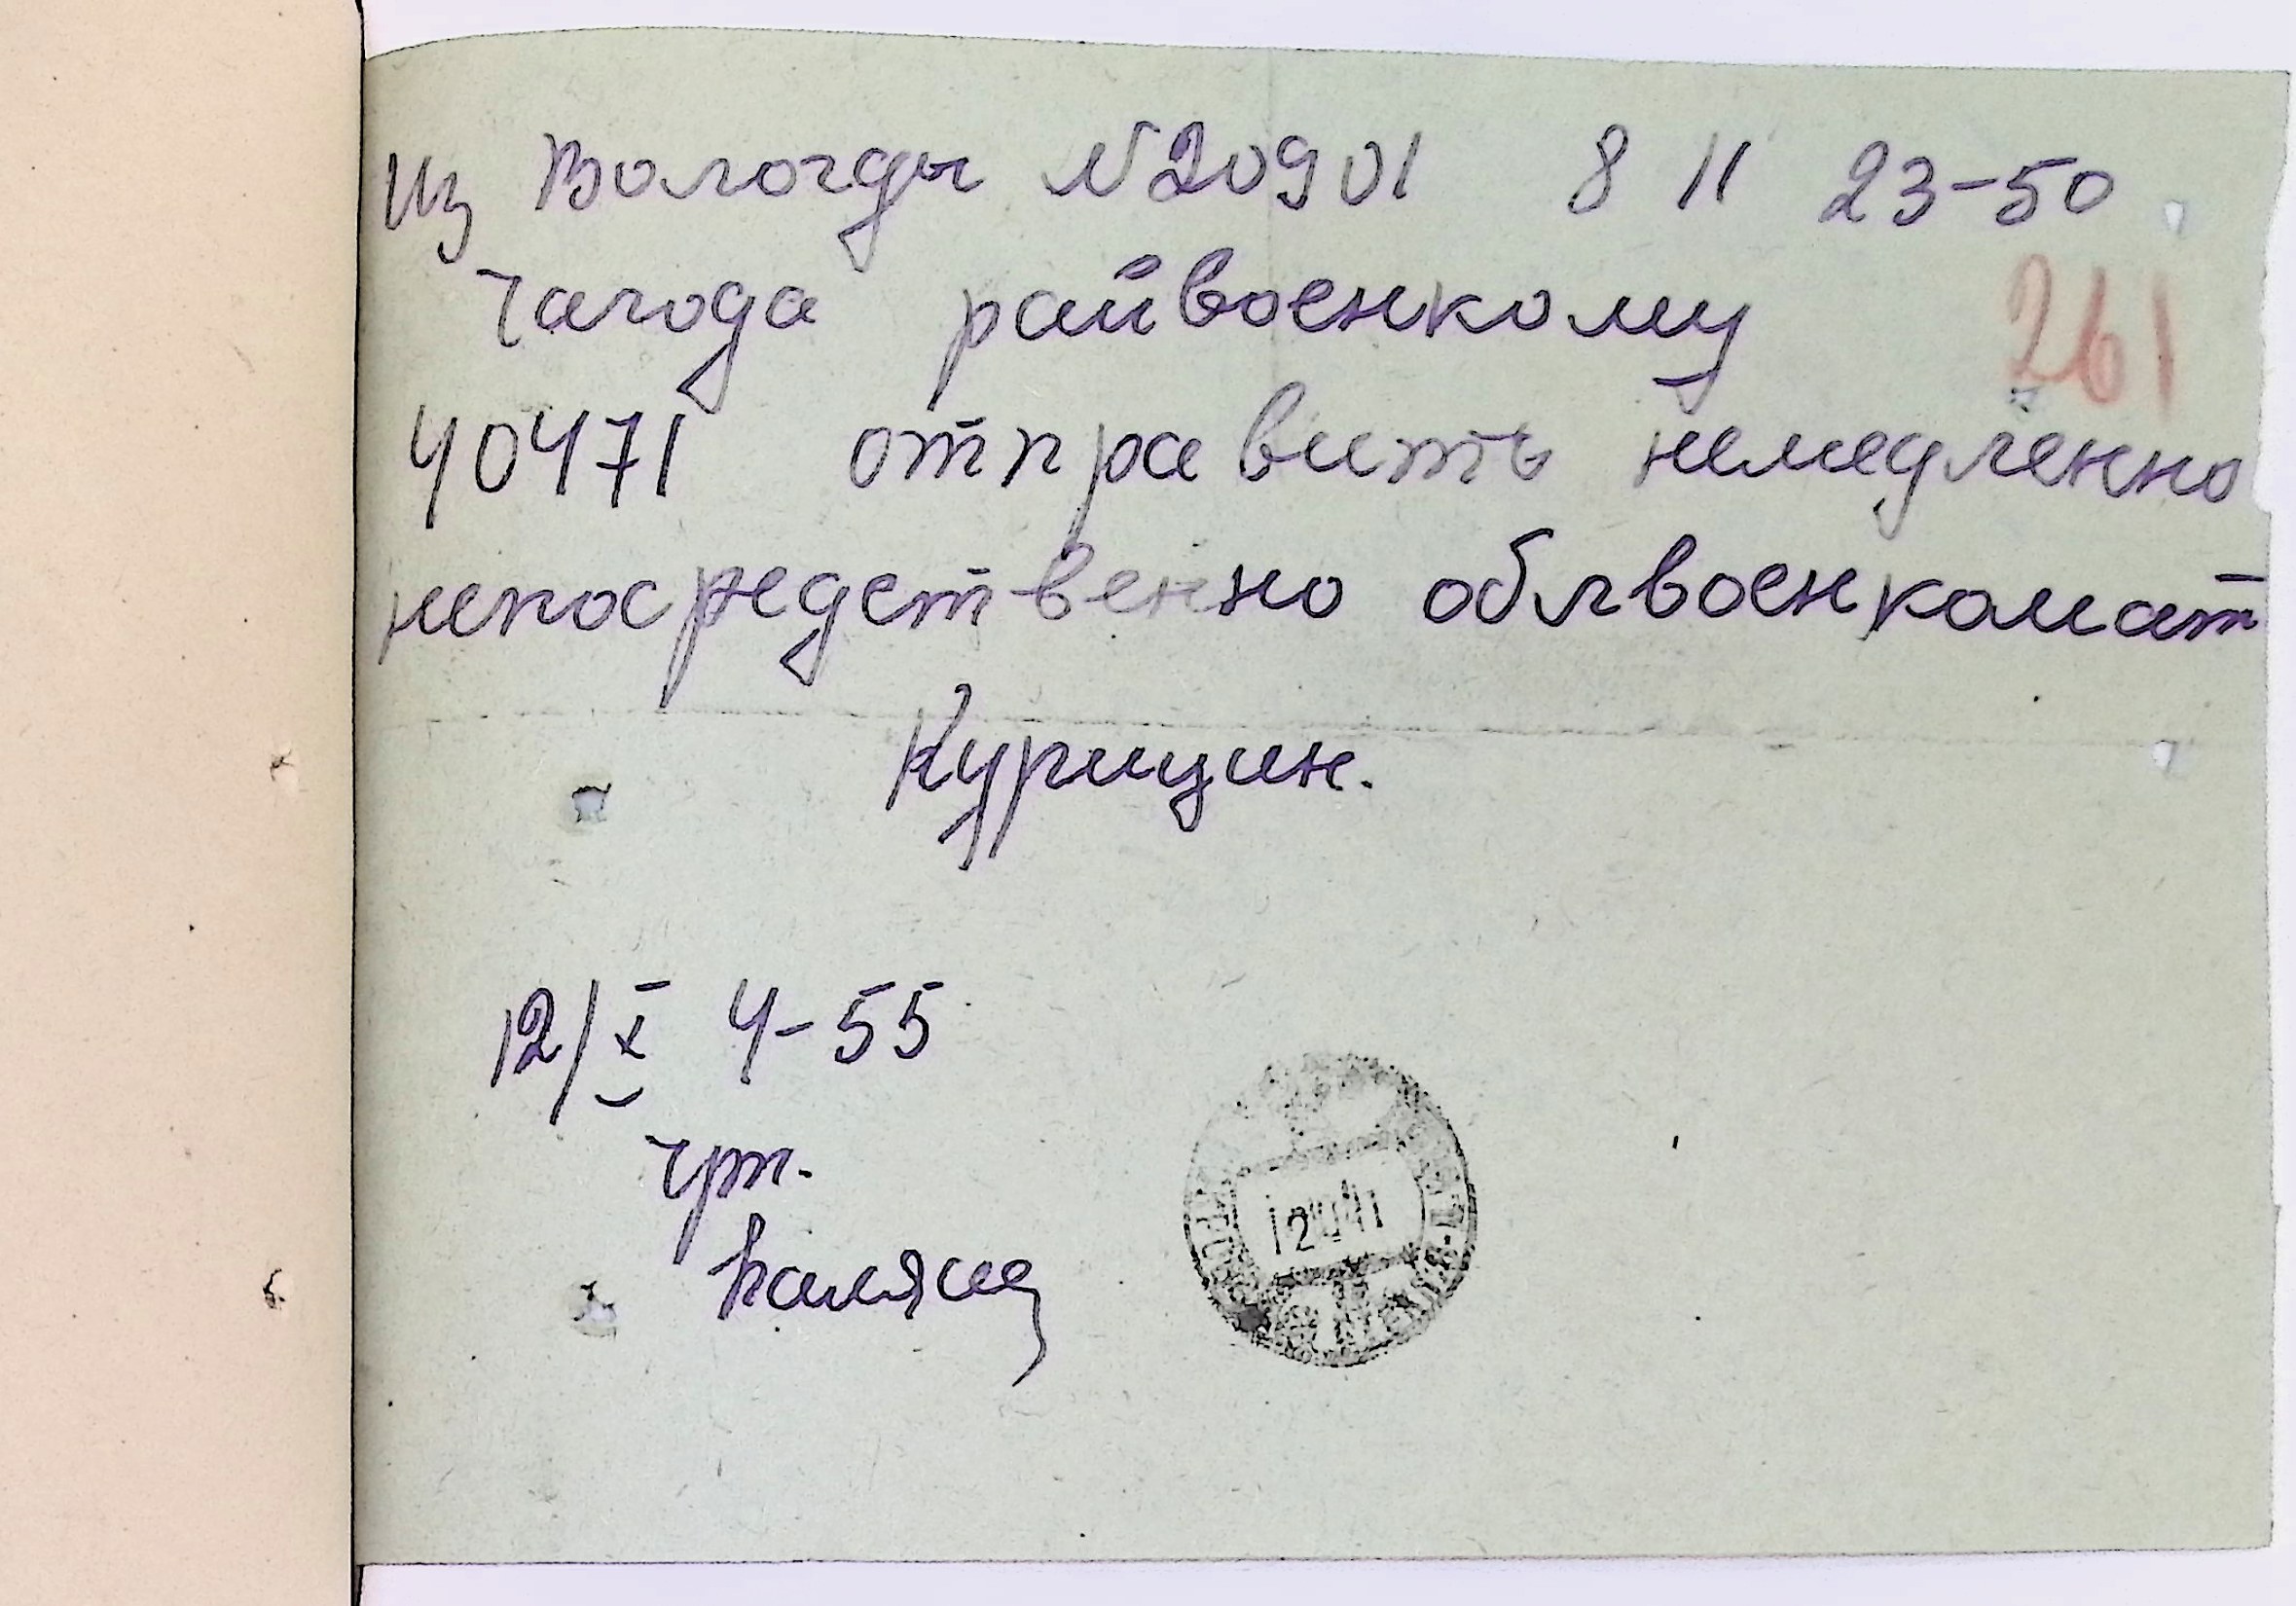 Из Вологды N20901 8 11 23-50
Чагода райвоенкому
261
40471 отправить немедленно
непосредственно облвоенкомат
Курицин.
12/X 4-55
чрп.
12 41